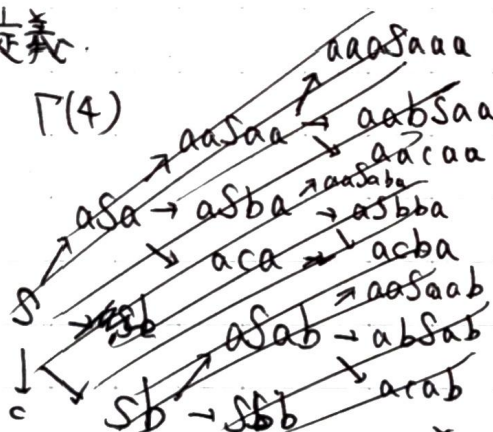 定義
Γ(4)
aaaSaaa
aaSaa → aabSaa
aacaa
aSa → aSba aaSaba
→ aSbba
aca acba
S → Sb aaSaab
aSab → abSab
c Sb → Sbb acab